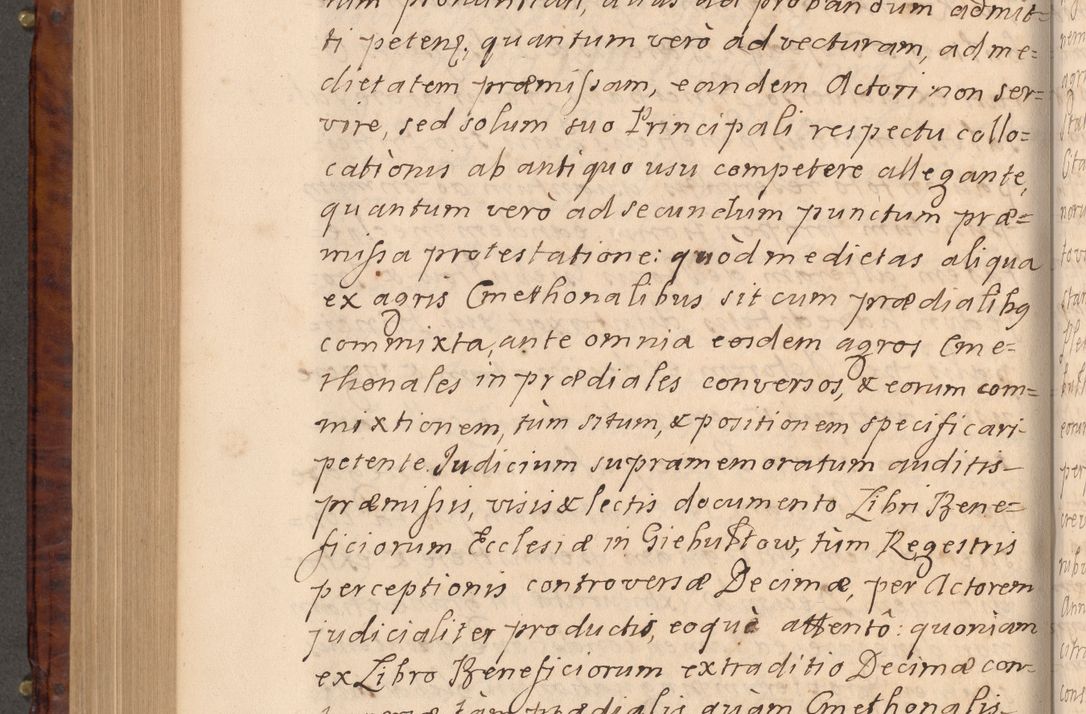 ti petenz, quantum verò ad vecturam, ad me=
dietatem præmissam, eandem Actori non ser=
vire, sed solum suo Principali respectu collo=
cationis ab antiquo usu competere allegante,
quantum verò ad secundum punctum præ=
missa protestatione: quòd medietas aliqua
ex agris Cmethonalibus sit cum prædialibq
commixta, ante omnia eosdem agros Cme=
thonales in prædiales conversos, & eorum com=
mixtionem, tùm situm, & positionem specificari
petente. Judicium supramemoratum auditis
præmissis, visis & lectis documento Libri Bene=
ficiorum Ecclesiæ in Giebułtow, tùm Regestris
perceptionis controversæ Decimæ, per Actorem
judicialiter productis, eoquè attentô: quoniam
ex Libro Beneficiorum extraditio Decimæ con=
tam prædialis quàm Cmethonalis